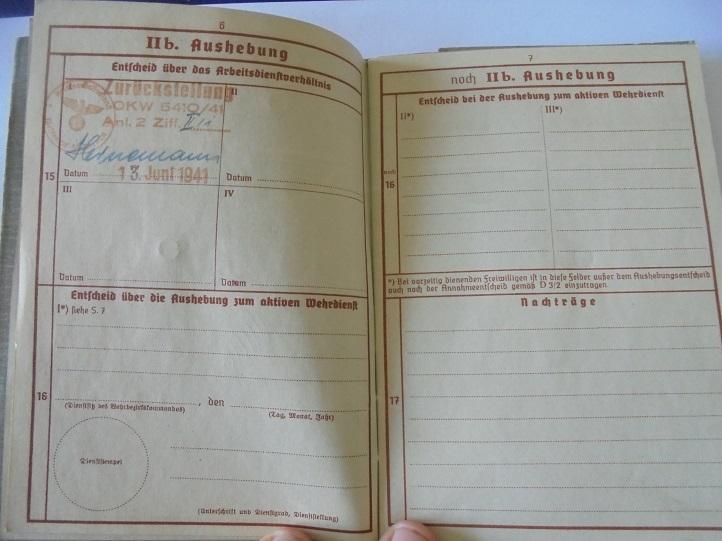 6
IIb. Aushebung
Entscheid über das Arbeitsdienstverhältnis
Zurückstellung
OKW 5410/41
Anl. 2 Ziff. II/1
Heinemann
15
Datum 13. Juni 1941
II
Datum
III
Datum
IV
Datum
Entscheid über die Aushebung zum aktiven Wehrdienst
I*) siehe S. 7
16
, den
(Dienstsitz des Wehrbezirkskommandos)
(Tag, Monat, Jahr)
Dienststempel
(Unterschrift und Dienstgrad, Dienststellung)
7
noch IIb. Aushebung
Entscheid bei der Aushebung zum aktiven Wehrdienst
II*)
III*)
noch
16
*) Bei vorzeitig dienenden Freiwilligen ist in diese Felder außer dem Aushebungsentscheid
auch noch der Annahmeentscheid gemäß D 3/2 einzutragen.
Nachträge
17